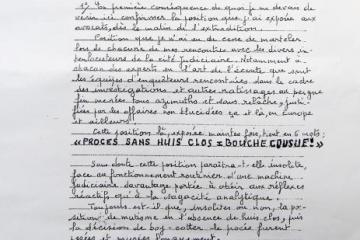 1°/ La première conséquence de quoi je me devais de
venir ici confirmer la position que j'ai exposée aux
avocats, dès le matin de l'extradition.
Position que je n'ai eu de cesse de marteler
lors de chacune de mes rencontres avec les divers in-
terlocuteurs de la cité judiciaire. Notamment à
chacun des experts en l'art de l'écoute que sont
les équipes d'enquêteurs rencontrées dans le cadre
des investigations et autres ratissages au peigne
fin menées tous azimuths et sans relâche, justi-
fiées par les affaires non élucidées çà et là, en Europe
et ailleurs.
Cette position là, exposée maintes fois, tient en 6 mots:
« PROCES SANS HUIS CLOS = BOUCHE COUSUE! »
Sans doute cette position paraîtra-t-elle insolite,
face au fonctionnement routinier d'une machine
judiciaire davantage portée à obéir aux réflexes
réactifs qu'à la sagacité analytique.
Toujours est-il que, insolites ou non, la po-
sition de mutisme en l'absence de huis clos, puis
la décision de boy-cotter le procès furent